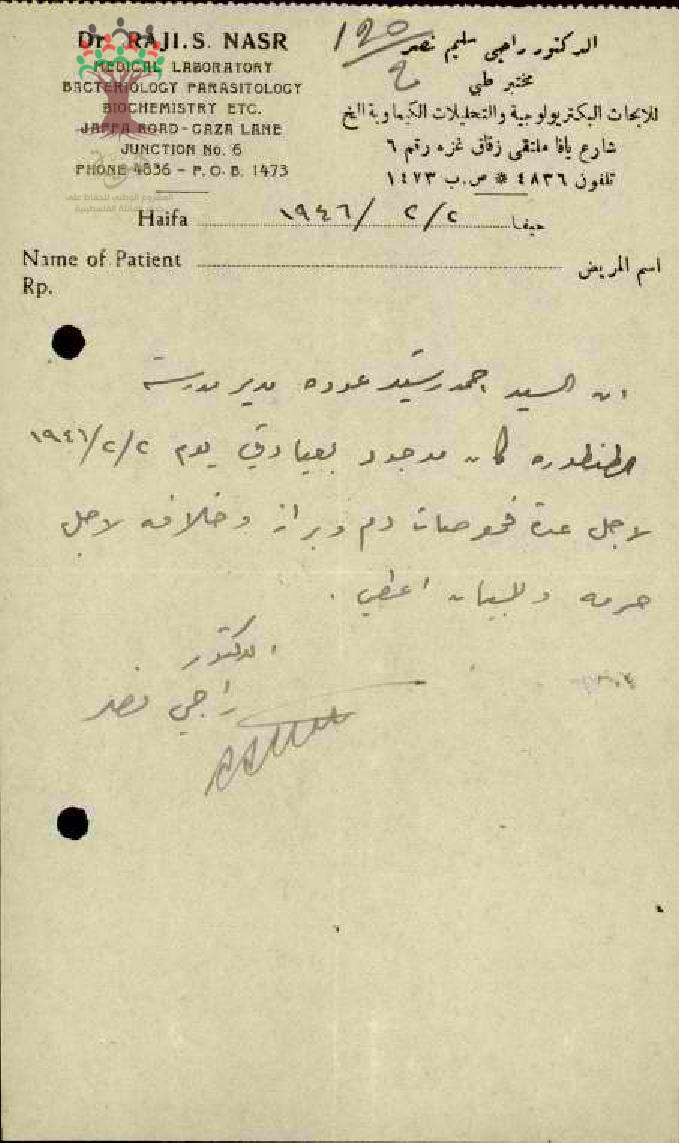 Dr. RAJI. S. NASR
MEDICAL LABORATORY
BACTERIOLOGY PARASITOLOGY
BIOCHEMISTRY ETC.
JAFFA ROAD - GAZA LANE
JUNCTION No. 6
PHONE 4836 - P. O. B. 1473
الدكتور راجي سليم نصر
مختبر طبي
للابحاث البكتريولوجية والتحليلات الكيماوية الخ
شارع يافا ملتقى زقاق غزه رقم ٦
تلفون ٤٨٣٦ * ص.ب ١٤٧٣
المشروع الوطني للحفاظ على
العائلة الفلسطينية
Haifa ١٩٤٦/ ٢/٢ حيفا
Name of Patient اسم المريض
Rp.
ان السيد احمد رشيد عوده مدير مدرسة
الطنطوره كان موجود بعيادتي يوم ١٩٤٦/٢/٢
لاجل عدة فحوصات دم وبراز وخلافه لاجل
حرمه وللبيان اعطي .
الدكتور
راجي نصر